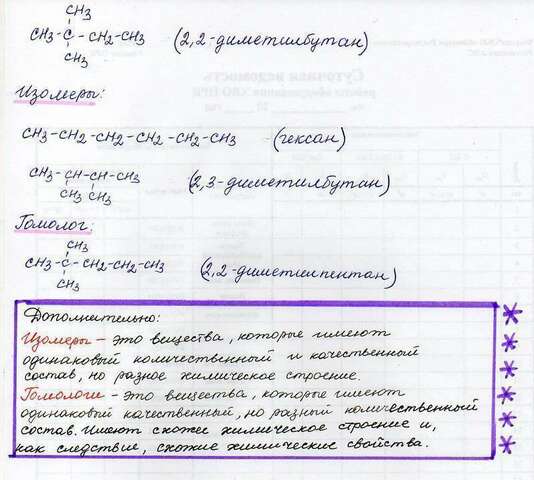 CH3
CH3-C-CH2-CH3 (2,2-диметилбутан)
CH3
Изомеры:
CH3-CH2-CH2-CH2-CH2-CH3 (гексан)
CH3-CH-CH-CH3 (2,3-диметилбутан)
CH3 CH3
Гомолог:
CH3
CH3-C-CH2-CH2-CH3 (2,2-диметилпентан)
CH3
Дополнительно:
Изомеры - это вещества, которые имеют
одинаковый количественный и качественный
состав, но разное химическое строение.
Гомологи - это вещества, которые имеют
одинаковый качественный, но разный количественный
состав. Имеют схожее химическое строение и,
как следствие, схожие химические свойства.
Суточная ведомость